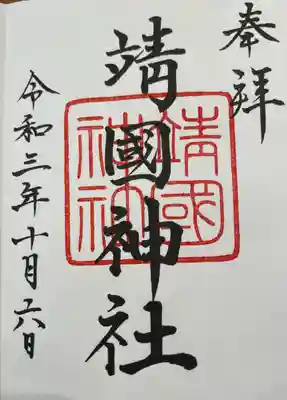 奉拝
靖國神社
靖國神社
令和三年十月六日